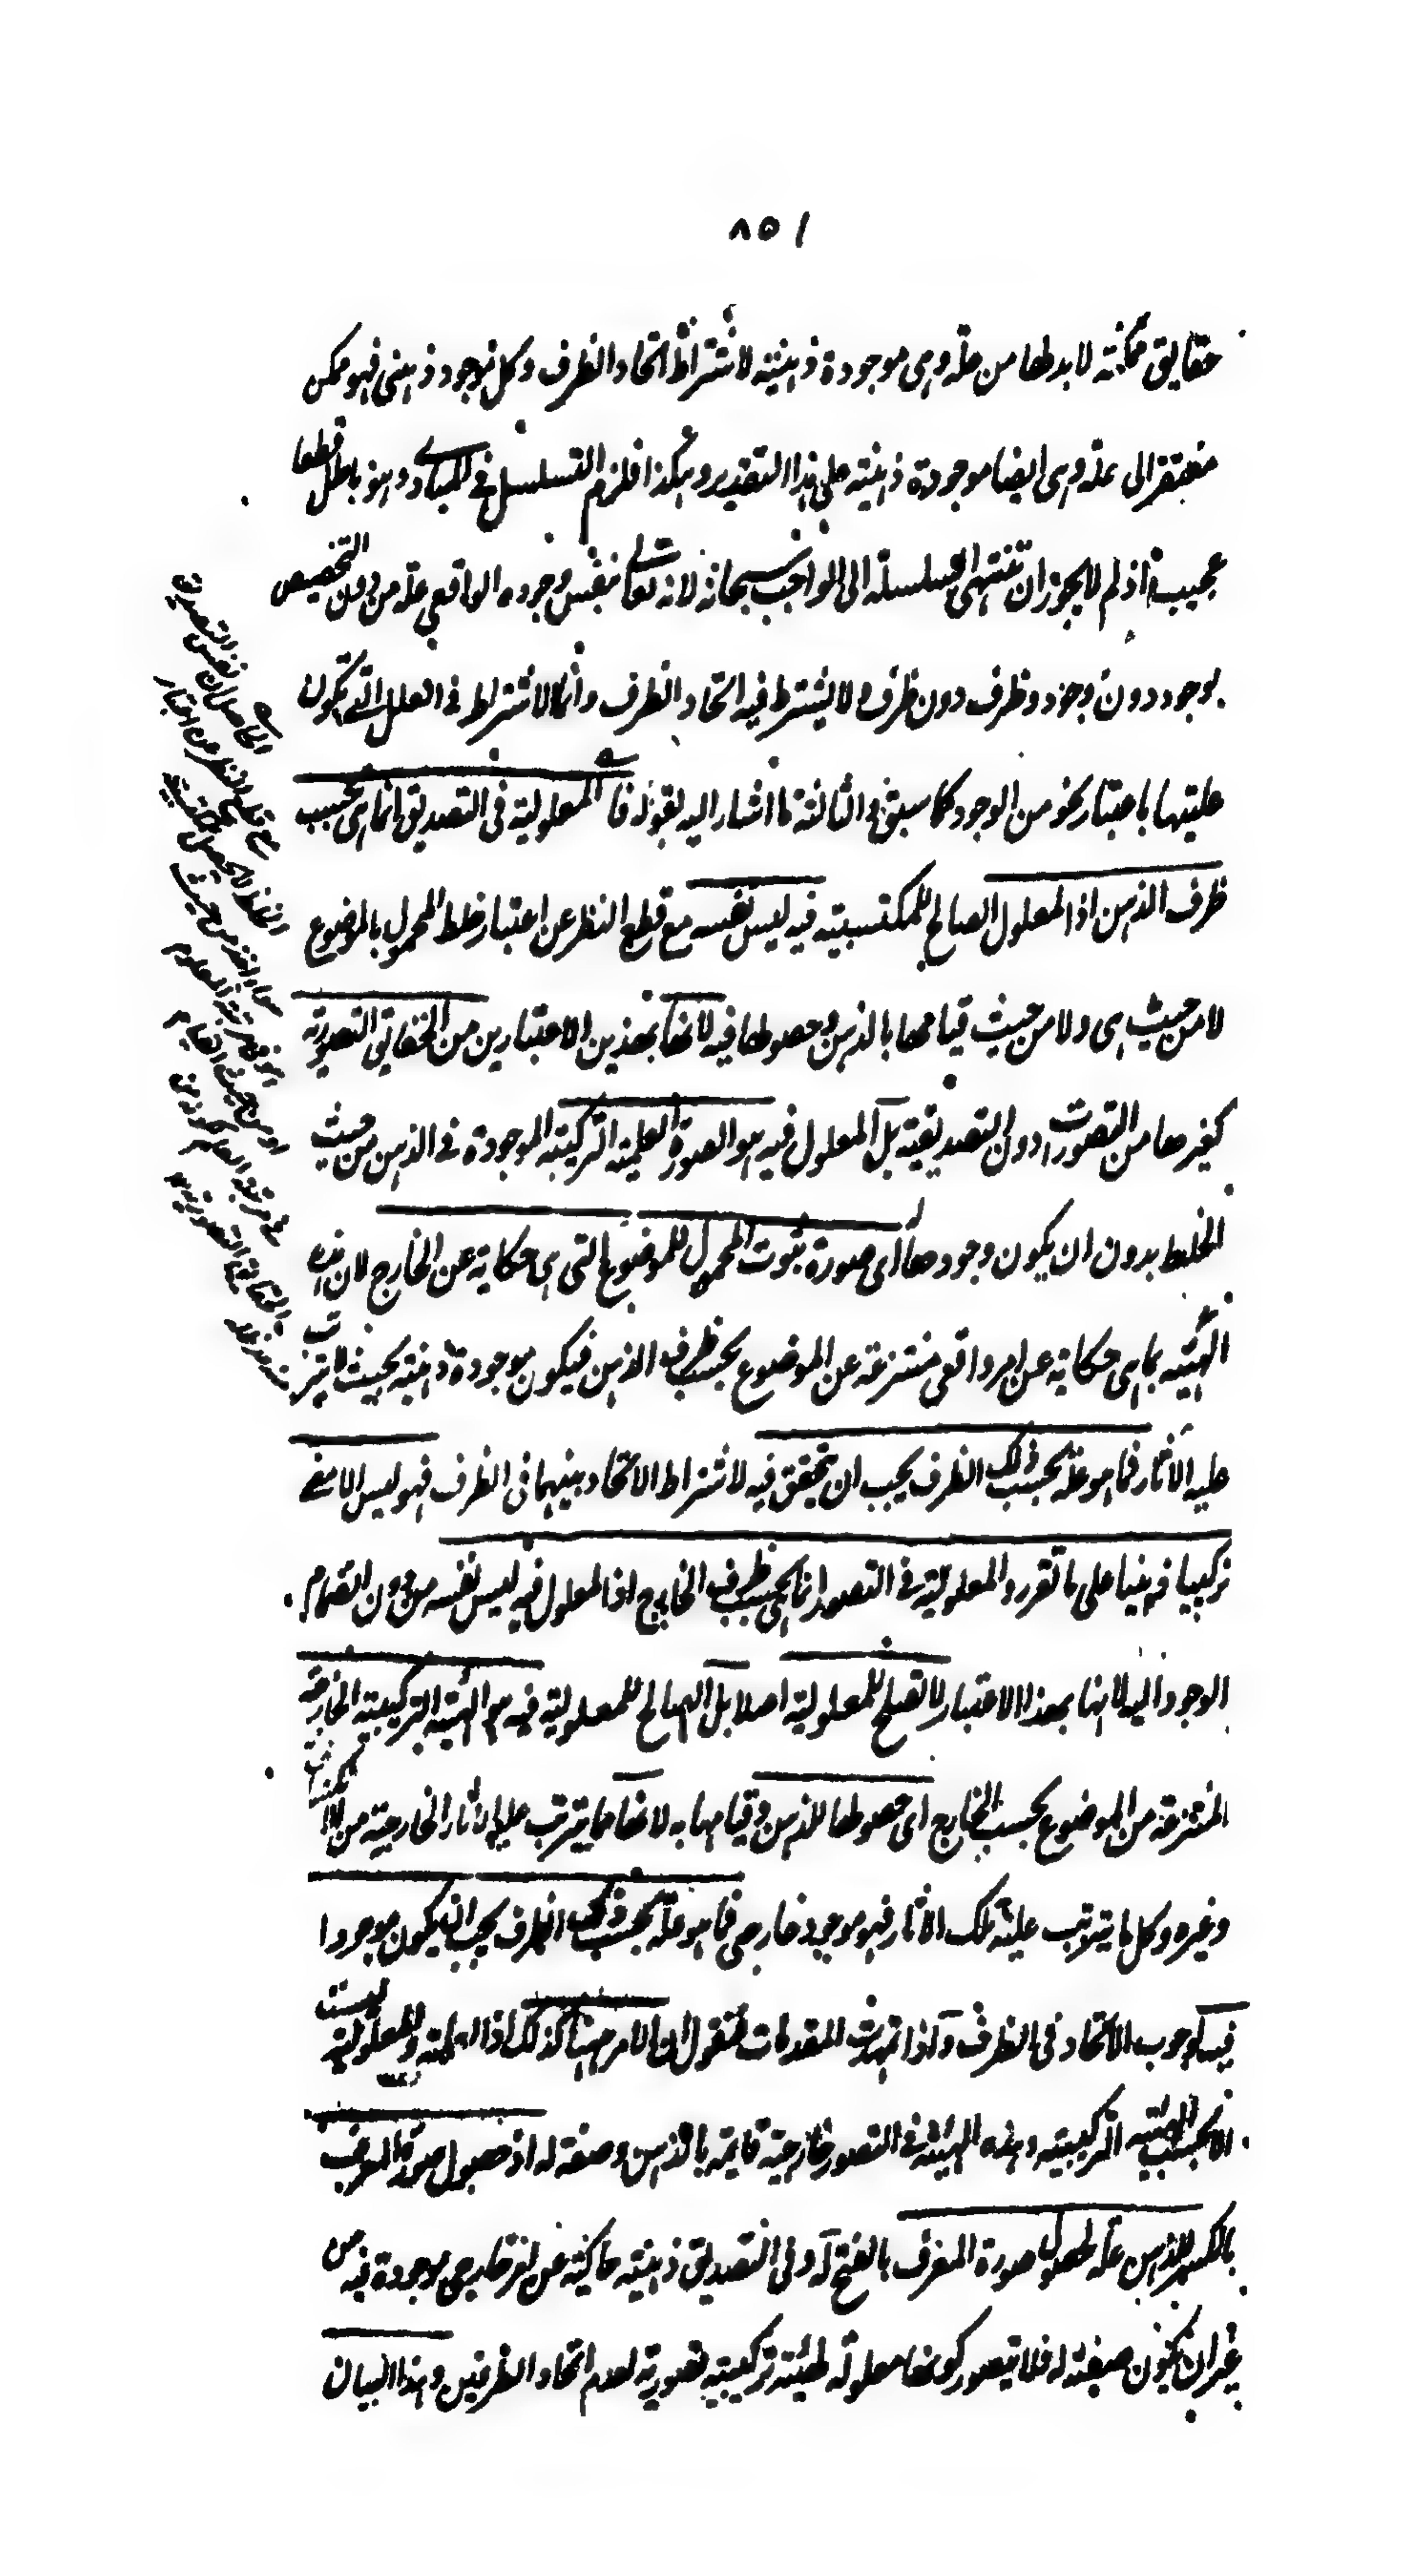 ٨٥١
حقايق ممكنة لا بد لها من علة وهى موجودة ذهنية لاشتراط اتحاد الظرف وكل موجود ذهنى فهو ممكن
مفتقر الى علة وهى ايضا موجودة ذهنية على هذا التقدير وهكذا فلزم التسلسل فى المبادى وهو باطل قطعا
عجيب اذ لم لا يجوز ان تنتهى السلسلة الى الواجب سبحانه لانه تعالى بنفس وجوده الواقعى علة من دون التخصيص
بوجود دون وجود وظرف دون ظرف ولا يشترط فيه اتحاد الظرف وانما الاشتراط فى العلل التى تكون
عليتها باعتبار نحو من الوجود كما سبق والثالثة ما اشار اليه بقوله فان المعلولية فى التصديق انما هى بحسب
ظرف الذهن اذ المعلول الصالح للمكتسبية فيه ليس نفسه مع قطع النظر عن اعتبار خلط المحمول بالموضوع
لا من حيث هى ولا من حيث قيامها بالذهن وحصولها فيه لانها بهذين الاعتبارين من الحقائق التصورية
كغيرها من التصورات دون التصديقية بل المعلول فيه هو الصورة العلمية التركيبية الموجودة فى الذهن من حيث
الخلط بدون ان يكون وجودها اى صورة ثبوت المحمول للموضوع التى هى حكاية عن الخارج لان هذه
الهيئة بما هى حكاية عن امر واقعى منتزعة عن الموضوع بحسب ظرف الذهن فيكون موجودة ذهنية بحيث لا يترتب
عليه الآثار فما هو علة بحسب ذلك الظرف يجب ان يتحقق فيه لاشتراط الاتحاد بينهما فى الظرف فهو ليس الا معنى
تركيبيا ذهنيا على ما تقرر والمعلولية فى التصور انما هى بحسب ظرف الخارج اذ المعلول فيه ليس نفسه من دون انضمام
الوجود اليه لانها بهذا الاعتبار لا تصلح للمعلولية اصلا بل الصالح للمعلولية فيه هو الهيئة التركيبية الخارجية
المنتزعة من الموضوع بحسب الخارج اى حصولها للذهن وقيامها به لانها مما يترتب عليه الآثار الخارجية من الانكشاف
وغيره وكل ما يترتب عليه تلك الآثار فهو موجود خارجى فما هو علة بحسب ذلك الظرف يجب ان يكون موجودا
فيه لوجوب الاتحاد فى الظرف واذا تمهدت المقدمات فنقول ان الامر ههنا كذلك اذ العلية والمعلولية ليست
الا بحسب الهيئة التركيبية وهذه الهيئة فى التصور خارجية قايمة بالذهن وصفة له اذ حصول صورة المعرف
بالكسر للذهن علة لحصول صورة المعرف بالفتح له وفى التصديق ذهنية حاكية عن امر خارجى موجودة فيه من
غير ان تكون صفة له فلا يتصور كونها معلولة لهيئة تركيبية تصورية لعدم اتحاد الظرفين وهذا البيان